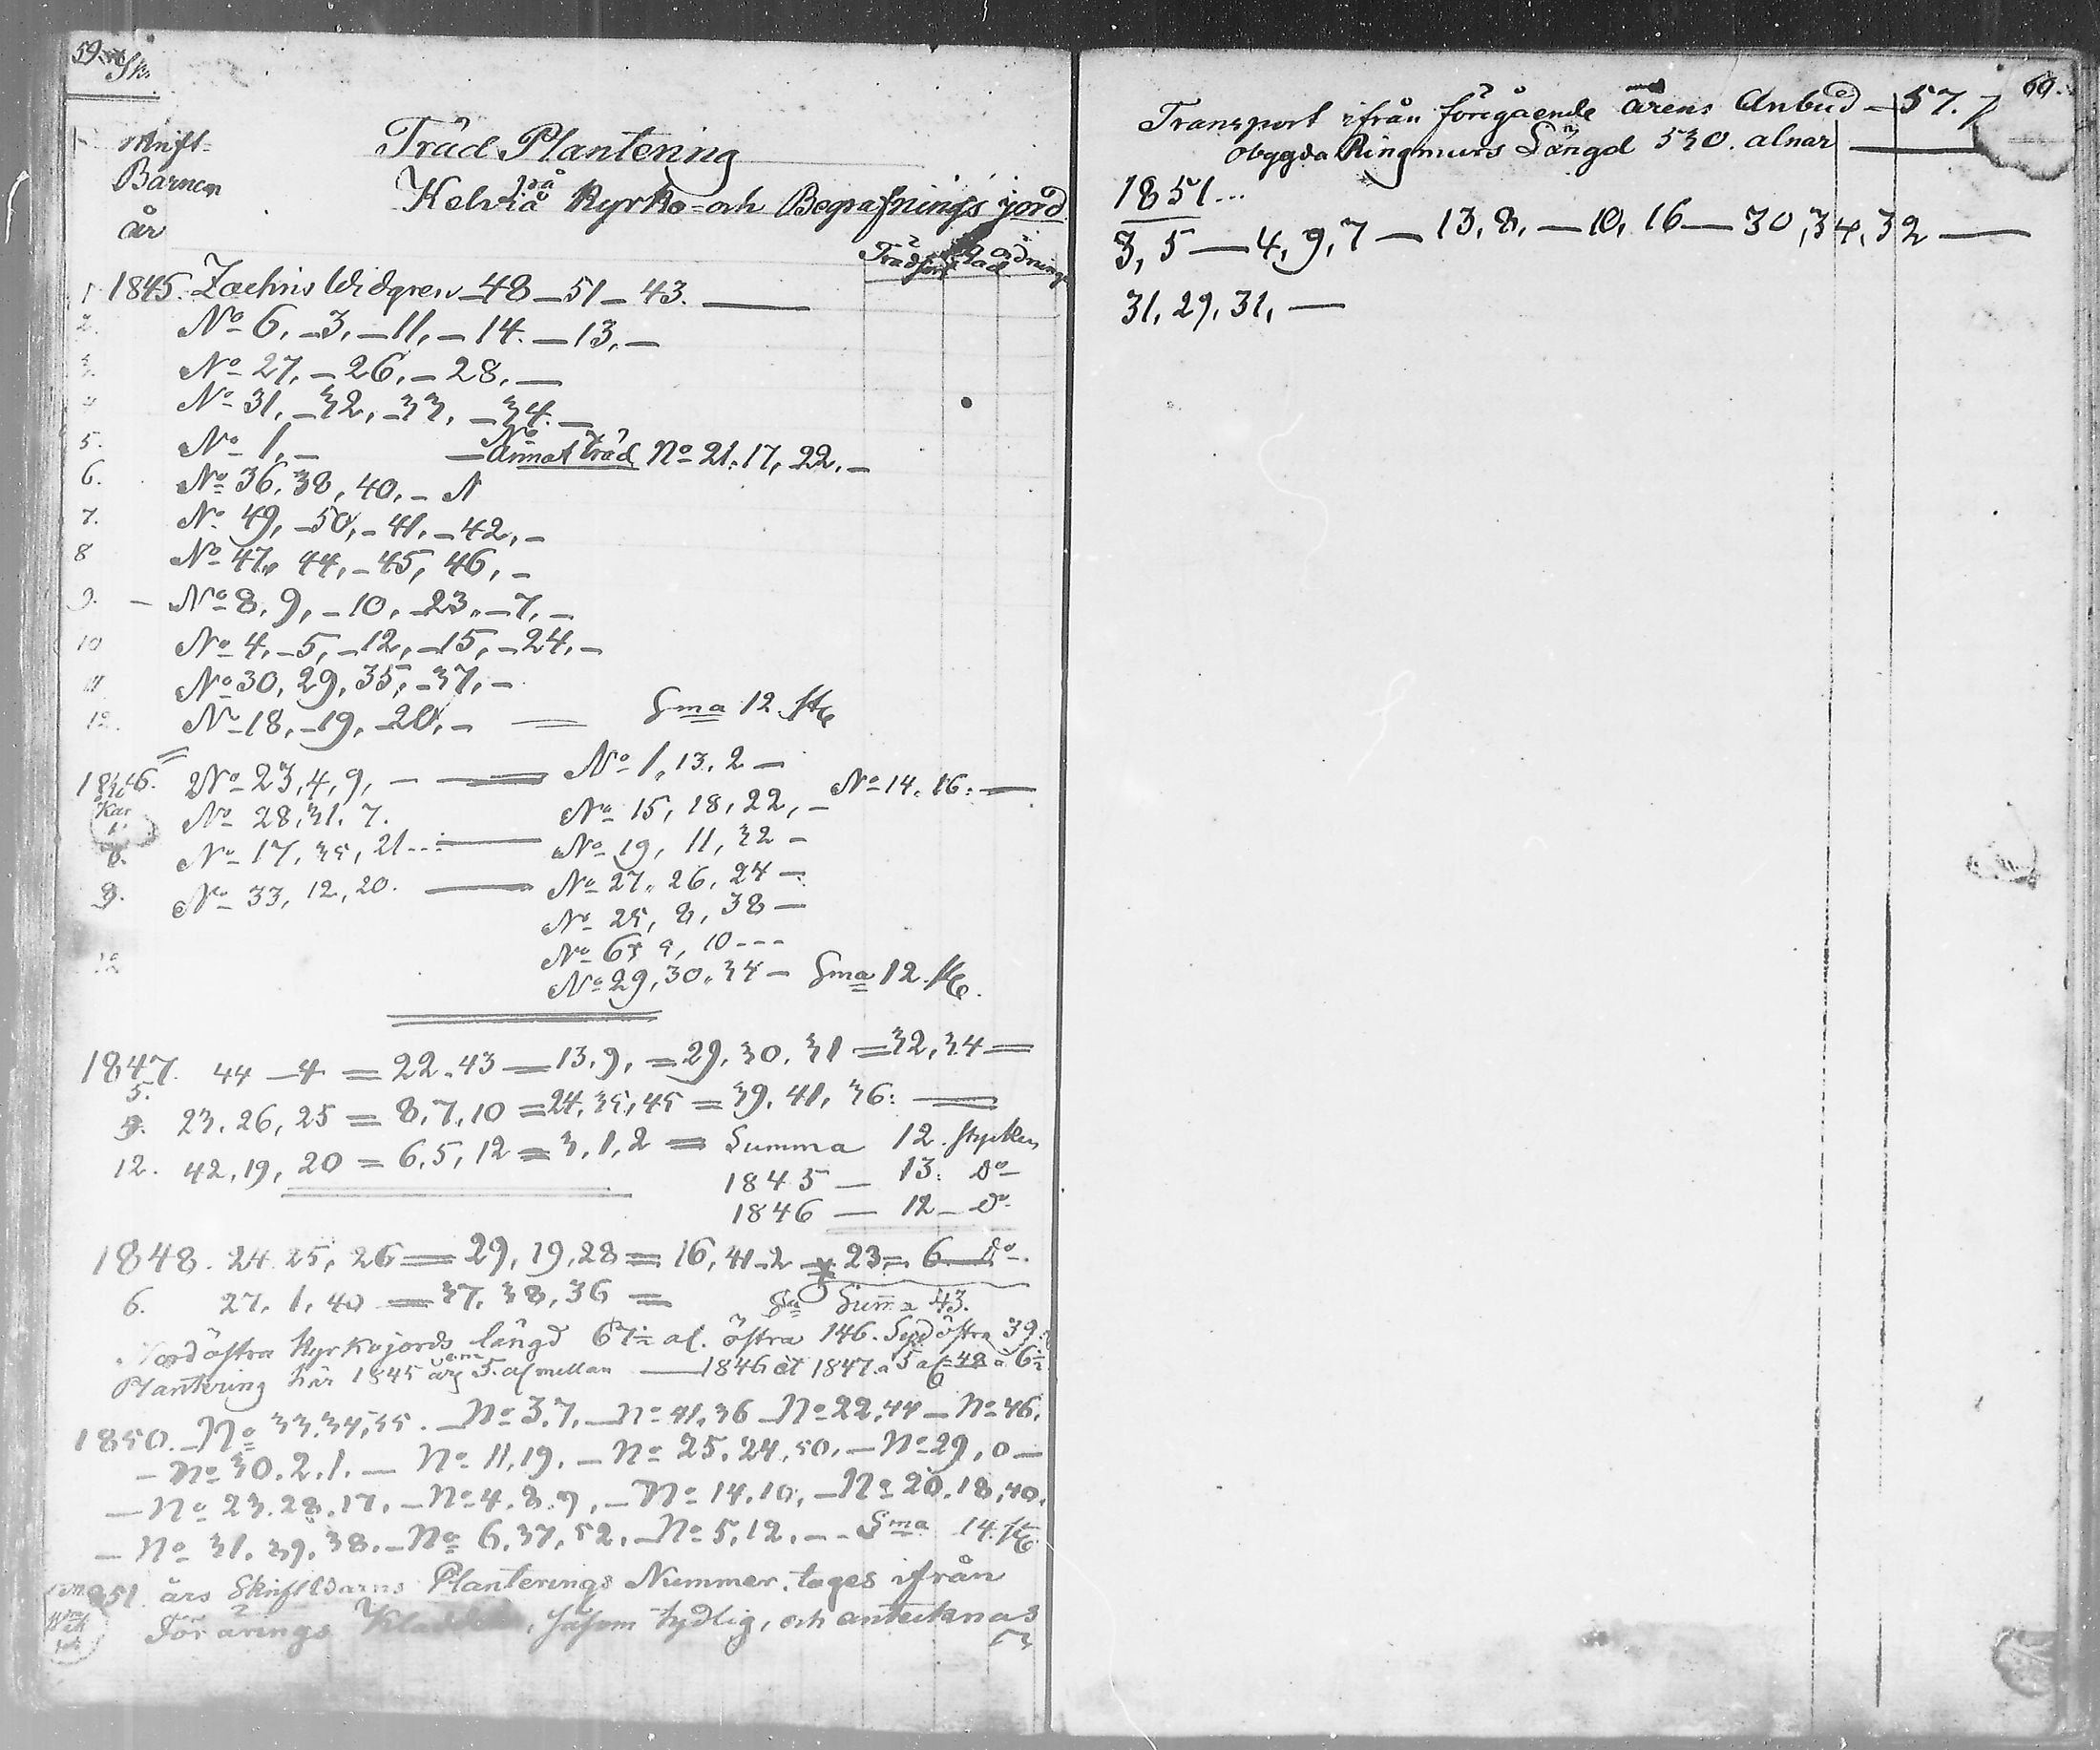 59.
Skrift-
Barnen
år
Träd Plantering
på
Kelviå Kyrko- och Begrafnings jord
Trädsort Rad Ordning
1 1845. Zachris Widgren - 48 - 51 - 43. —
2. No 6, - 3, - 11, - 14. - 13, -
3. No 27, - 26, - 28, —
4 No 31, - 32, - 33, - 34. -
5. No 1, - - Annat träd No 21. 17, 22. -
6. No 36. 38, 40, - N
7. No 49, - 50, - 41, - 42, -
8 No 47, 44, - 45, 46, -
9. - No 8, 9, - 10, - 23, - 7, -
10 No 4, - 5, - 12, - 15, - 24, -
11 No 30, 29, 35, - 37, -
12. No 18, - 19, - 20, - = Sma 12 st
1846. No 23, 4, 9, - — No 1, 13, 2 -
No 28, 31, 7. No 15, 18, 22, - No 14. 16: —
8. No 17, 35, 21 — No 19, 11, 32 -
9. No 33, 12, 20. — No 27, 26, 24 -
No 25, 8, 38 -
No 10 ---
12 No 29, 30, 34 - Sma 12. st.
1847. 44 - 4 = 22. 43 — 13. 9, = 29, 30, 31 = 32, 34 =
5.
9. 23, 26, 25 = 8, 7, 10 = 24, 35, 45 = 39, 41, 36: =
12. 42, 19, 20 = 6, 5, 12 = 3, 1, 2 = Summa 12. stycken
1845 — 13: do
1846 — 12 - do
1848. 24 25, 26 = 29, 19, 28 = 16, 41 - 2 23 - 6 — do.
6. 27, 1, 40 = 37, 38, 36 = Summa 43.
Nordöstra Kyrkojords längd 67½ al. östra 146. Sydöstra 39
Plantering här 1845 års 5. al mellan — 1846 åt 1847. à 5 al 48 à 6½
1850. - No 33. 34, 35. - No 3, 7. - No 41, 36 - No 22, 44 - No 46.
- No 30. 2. 1. - No 11. 19. - No 25. 24, 50, - No 29, 0 -
- No 23. 28. 17. - No 4. 8. 9, - No 14. 10, - No 20. 18, 40.
- No 31. 39. 38. - No 6. 37, 52. - No 5. 12. -- Sma 14. st
1851. års Skriftbarns Planterings Nummer, tages ifrån
Förårings Kladden, såsom tydlig, och antecknas
60.
Transport ifrån föregående årens Anbud - 57.
obygda Ringmurs Längd 530. alnar —
1851...
3, 5 — 4, 9, 7 — 13, 8, — 10, 16 — 30, 34, 32 —
31, 29, 31, —